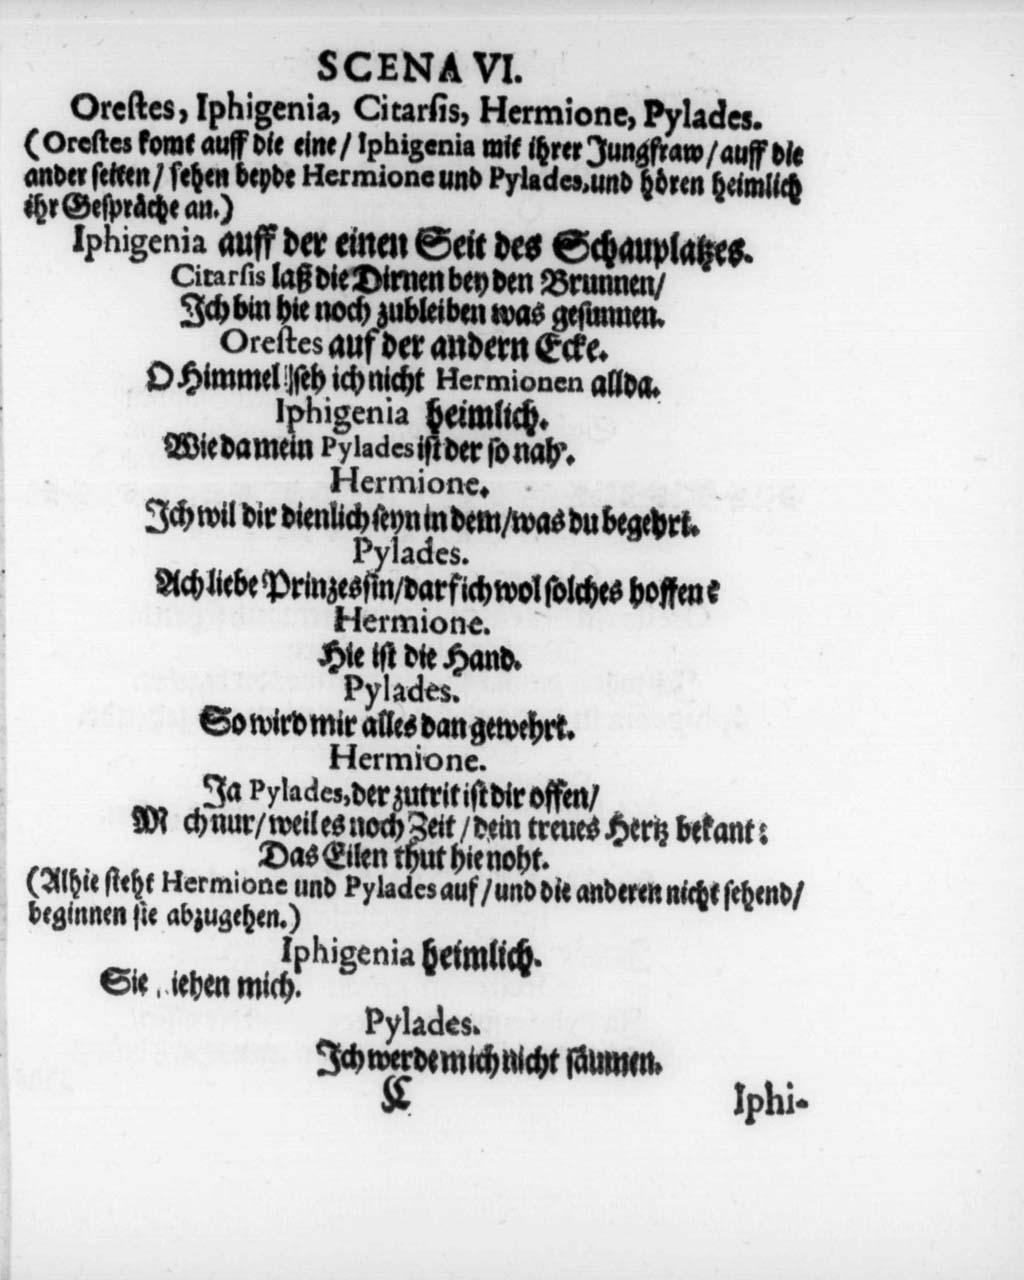 SCENA VI.
Orestes, Iphigenia, Citarsis, Hermione, Pylades.
(Orestes komt auff die eine/ Iphigenia mit ihrer Jungfraw/ auff die
ander seiten/ sehen beyde Hermione und Pylades, und hören heimlich
ihr Gespräche an.)
Iphigenia auff der einen Seit des Schauplatzes.
Citarsis laß die Dirnen bey den Brunnen/
Ich bin hie noch zubleiben was gesinnen.
Orestes auf der andern Ecke.
O Himmel seh ich nicht Hermionen allda.
Iphigenia heimlich.
Wie da mein Pylades ist der so nah'.
Hermione.
Ich wil dir dienlich seyn in dem/ was du begehrt.
Pylades.
Ach liebe Prinzessin/ darf ich wol solches hoffen?
Hermione.
Hie ist die Hand.
Pylades.
So wird mir alles dan gewehrt.
Hermione.
Ja Pylades, der zutrit ist dir offen/
M ch nur/ weil es noch Zeit/ dein treues Hertz bekant:
Das Eilen thut hie noht.
(Alhie steht Hermione und Pylades auf/ und die anderen nicht sehend/
beginnen sie abzugehen.)
Iphigenia heimlich.
Sie iehen mich.
Pylades.
Ich werde mich nicht säumen.
C Iphi-